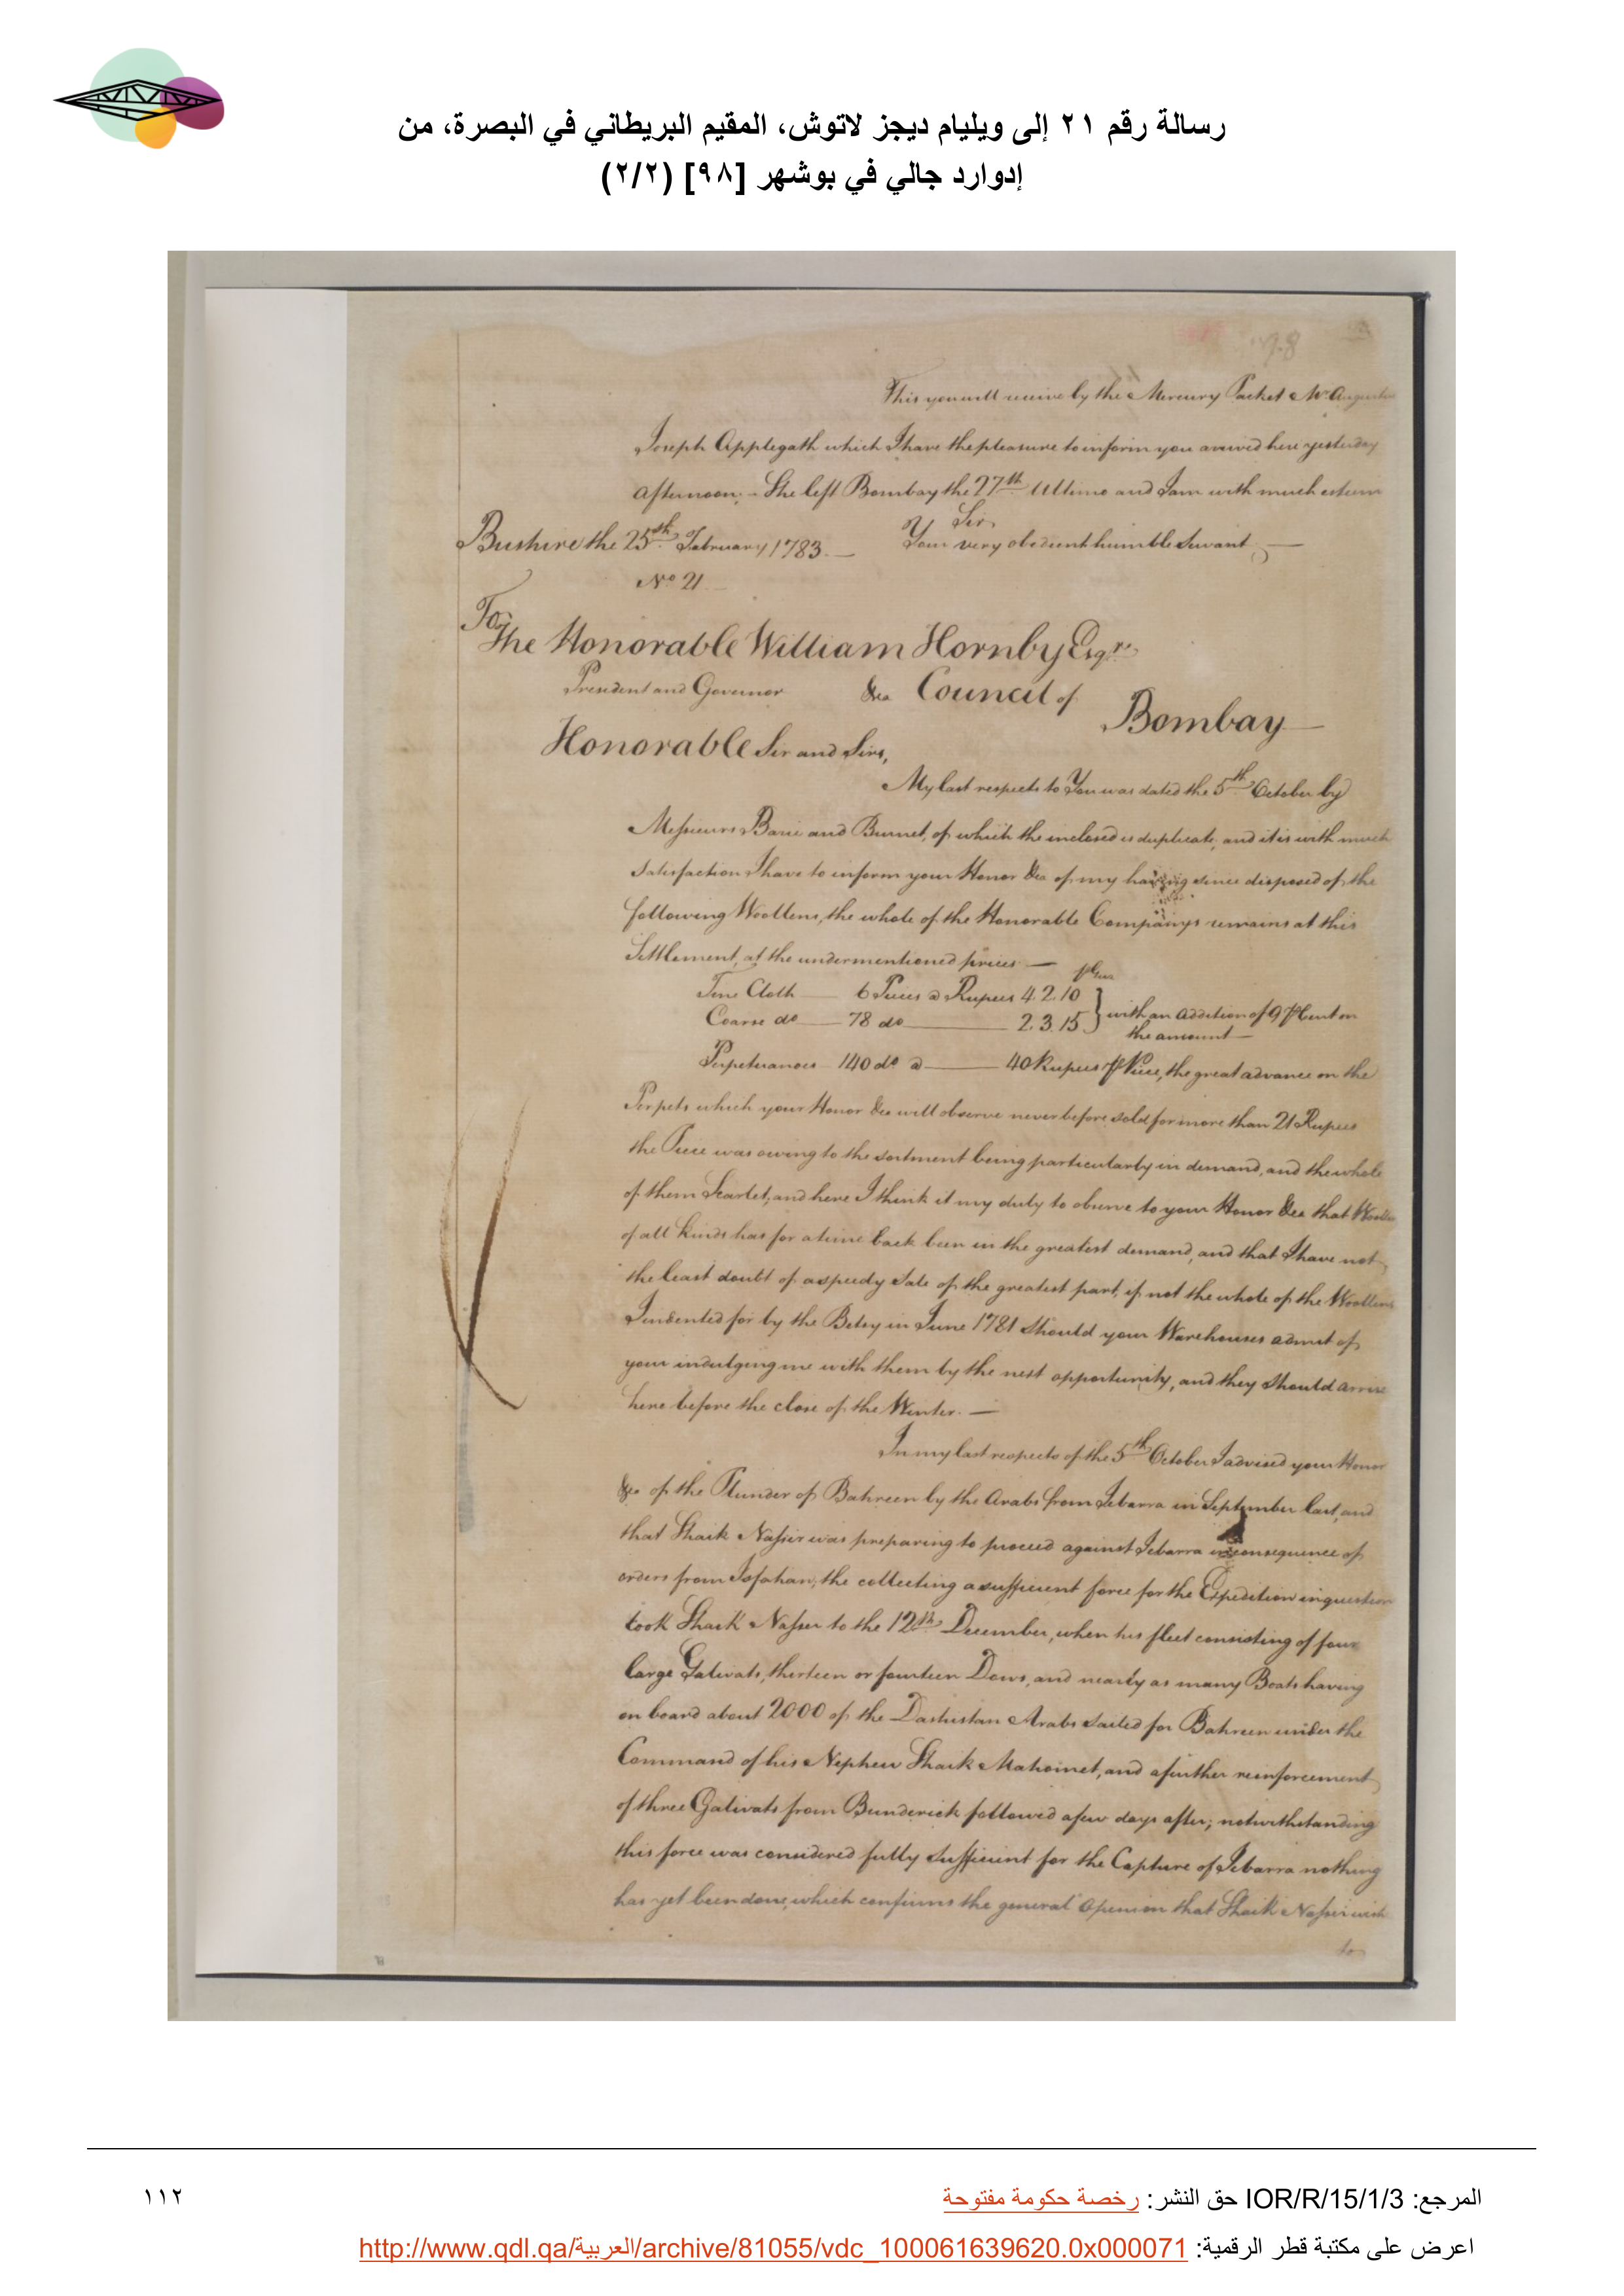 رسالة رقم ٢١ إلى ويليام ديجز لاتوش، المقيم البريطاني في البصرة، من
إدوارد جالي في بوشهر [٩٨] (٢/٢)
98
This you will receive by the Mercury Packet Mr. Augustus
Joseph Applegath which I have the pleasure to inform you arrived here yesterday
afternoon. - She left Bombay the 27th. Ultimo and I am with much esteem
Sir
Bushire the 25th. February 1783. — Your very obedient humble Servant —
No 21.
To
The Honorable William Hornby Esqre.
President and Governor &ca Council of
Bombay —
Honorable Sir and Sirs,
My last respects to You was dated the 5th October by
Messieurs Barie and Burnet, of which the inclosed is duplicate, and it is with much
Satisfaction I have to inform your Honor &ca of my having since disposed of the
following Woollens, the whole of the Honorable Companys remains at this
Settlement, at the undermentioned prices —
Fine Cloth — 6 Pieces @ Rupees 4.2.10 } with an addition of 9 P Cent on
Coarse do — 78 do — 2.3.15 } the amount —
Perpetuanoes 140 do @ — 40 Rupees P Piece, the great advance on the
Perpets which your Honor &ca will observe never before sold for more than 21 Rupees
the Piece was owing to the sortment being particularly in demand, and the whole
of them Scarlet, and here I think it my duty to observe to your Honor &ca that Woollens
of all kinds has for a time back been in the greatest demand, and that I have not
the least doubt of a speedy Sale of the greatest part, if not the whole of the Woollens
Indented for by the Betsy in June 1781 should your Warehouses admit of
your indulging me with them by the next opportunity, and they should arrive
here before the close of the Winter. —
In my last respects of the 5th October I advised your Honor
&ca of the Plunder of Bahreen by the Arabs from Zebarra in September last, and
that Shaik Nassir was preparing to proceed against Zebarra in consequence of
orders from Isfahan, the collecting a sufficient force for the Expedition in question
took Shaik Nasser to the 12th December, when his fleet consisting of four
large Galivats, thirteen or fourteen Dows, and nearly as many Boats having
on board about 2000 of the Dashistan Arabs sailed for Bahreen under the
Command of his Nephew Shaik Mahomet, and a further reinforcement
of three Galivats from Bunderick followed a few days after; notwithstanding
this force was considered fully sufficient for the Capture of Zebarra nothing
has yet been done, which confirms the general Opinion that Shaik Nassir wish
to
المرجع: IOR/R/15/1/3 حق النشر: رخصة حكومة مفتوحة
١١٢
اعرض على مكتبة قطر الرقمية: http://www.qdl.qa/العربية/archive/81055/vdc_100061639620.0x000071